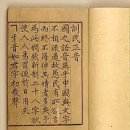 訓民正音
國之語音異乎中國與文字
不相流通故愚民有所欲言
而終不得伸其情者多矣予
爲此憫然新制二十八字欲
使人人易習便於日用耳
ㄱ牙音如君字初發聲